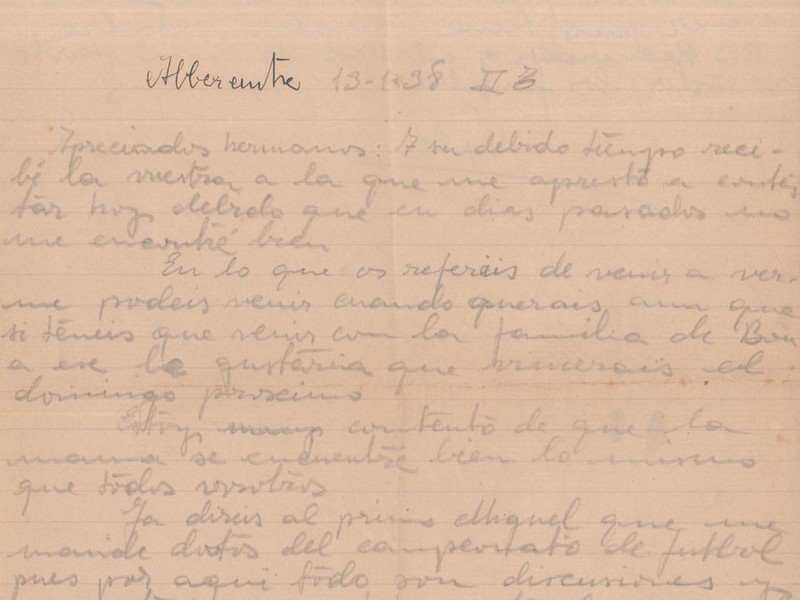 Alberentre 13-1-38 II Z
Apreciados hermanos: A su debido tiempo reci-
bé la vuestra a la que me aprestó a contes
tar hoy debido que en dias pasados no
me encontré bien
En lo que os refereis de venir a ver-
me podeis venir cuando querais, aun que
si teneis que venir con la familia de Bou
a ese le gustaria que vinierais el
domingo proximo
Estoy muy contento de que la
mama se encuentre bien lo mismo
que todos vosotros
Ja direis al primo Miguel que me
mande datos del campeonato de futbol
pues por aqui todo son discusiones y